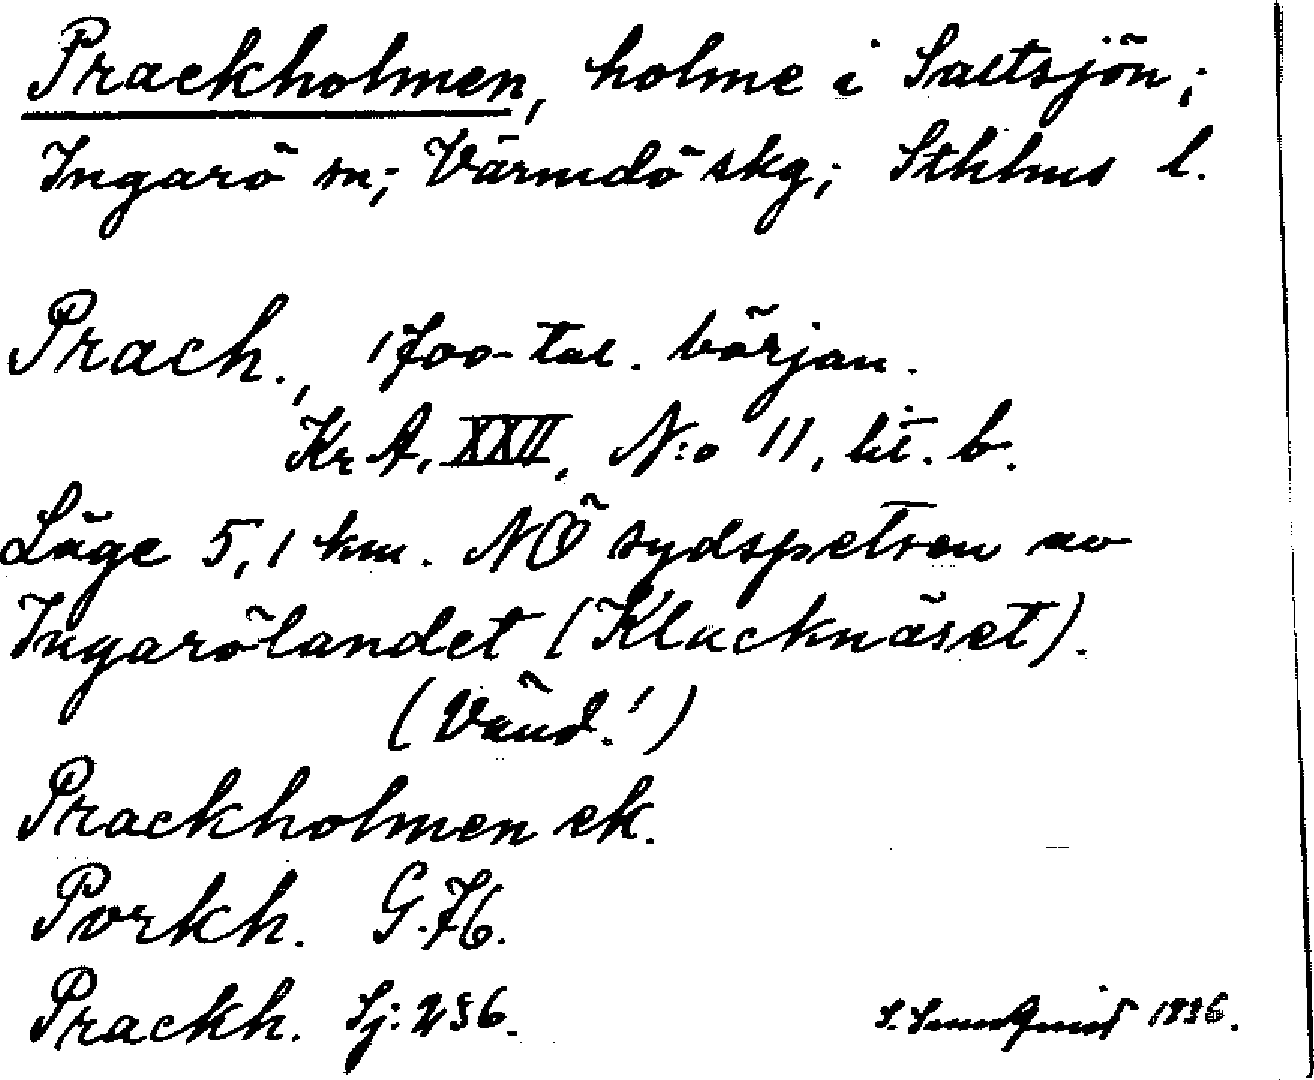 Prackholmen, holme i Saltsjön;
Ingarö sn; Värmdö skg; Sthlms l.
Prach., 1700-tal. början.
Kr A. XXII, N:o 11, lit. b.
Läge 5,1 km. NÖ sydspetsen av
Ingarölandet (Klacknäset).
(Vänd!)
Prackholmen ek.
Porkh. G.76.
Prackh. Sj: 236.
1936.